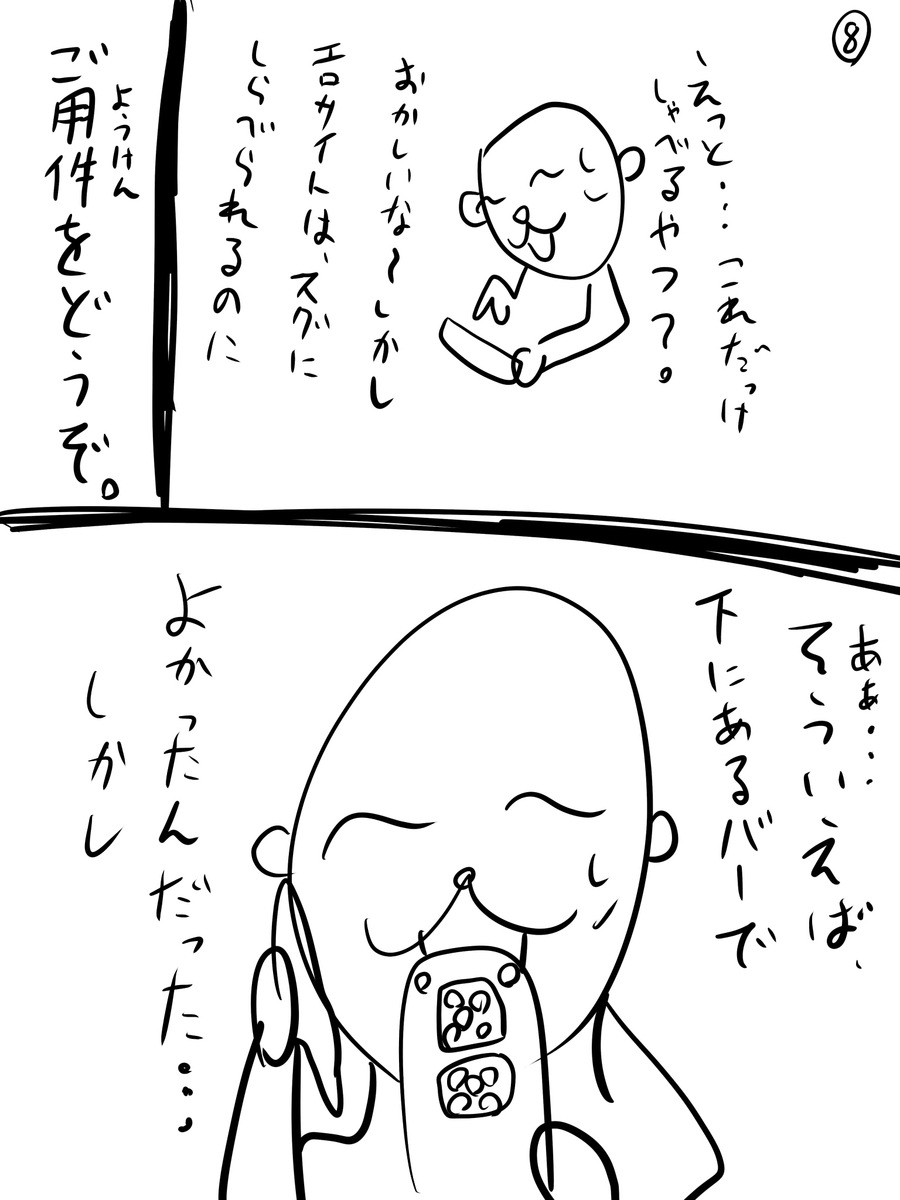 ⑧
、えっと・・・これだっけ
しゃべるやつ？。
おかしいな〜しかし
エロサイトは、スグに
しらべられるのに
ようけん
ご用件をどうぞ。
あぁ・・・
そういえば、
下にあるバーで
よかったんだった・・・
しかし